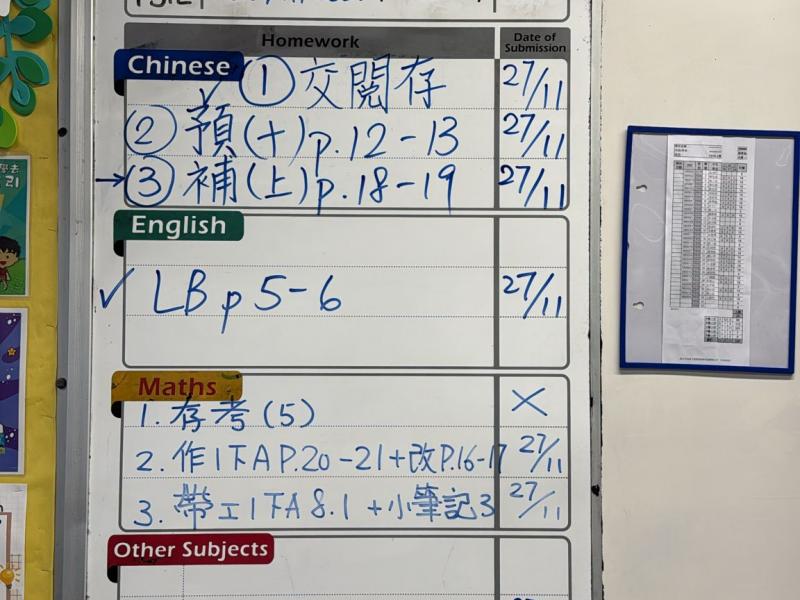 Homework
Date of Submission
Chinese
① 交閱存 27/11
② 預(十)p.12-13 27/11
→③ 補(上)p.18-19 27/11
English
✓ LB p 5-6 27/11
Maths
1. 存考(5) ×
2. 作1下A P.20-21+改P.16-17 27/11
3. 帶工1下A 8.1 +小筆記3 27/11
Other Subjects